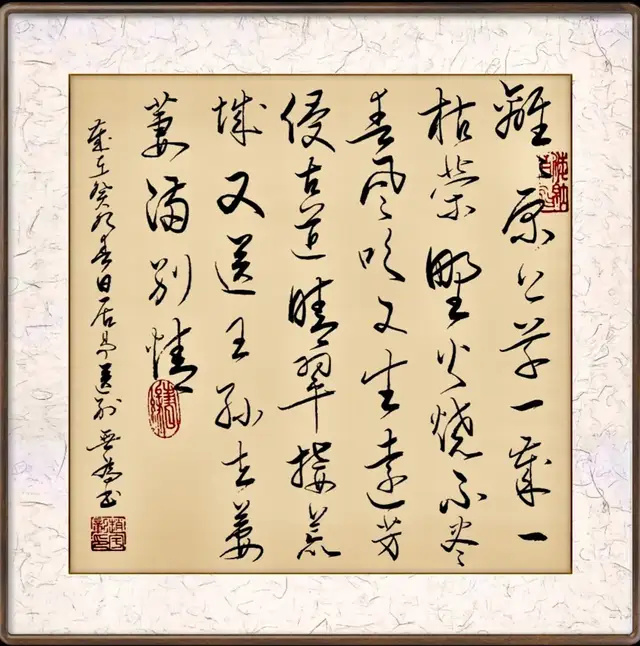 離々原上草一歲一
枯榮野火燒不盡
春風吹又生遠芳
侵古道晴翠接荒
城又送王孫去萋
萋滿別情
歲在癸卯春日居易送別